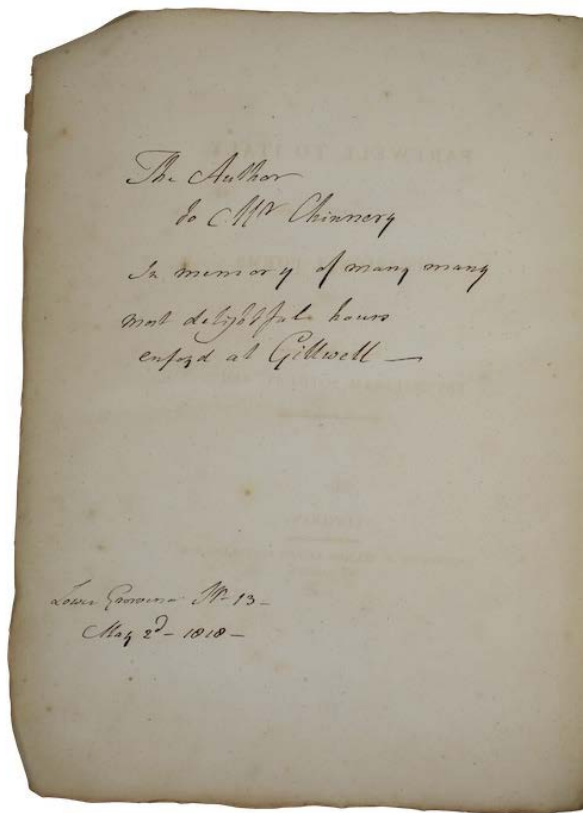 The Author
to Mrs Chinnery
In memory of many many
most delightful hours
enjoyd at Gillwell —
Lower Grosvenor St - 13 -
May 2d - 1818 -
FAREWELL TO ITALY